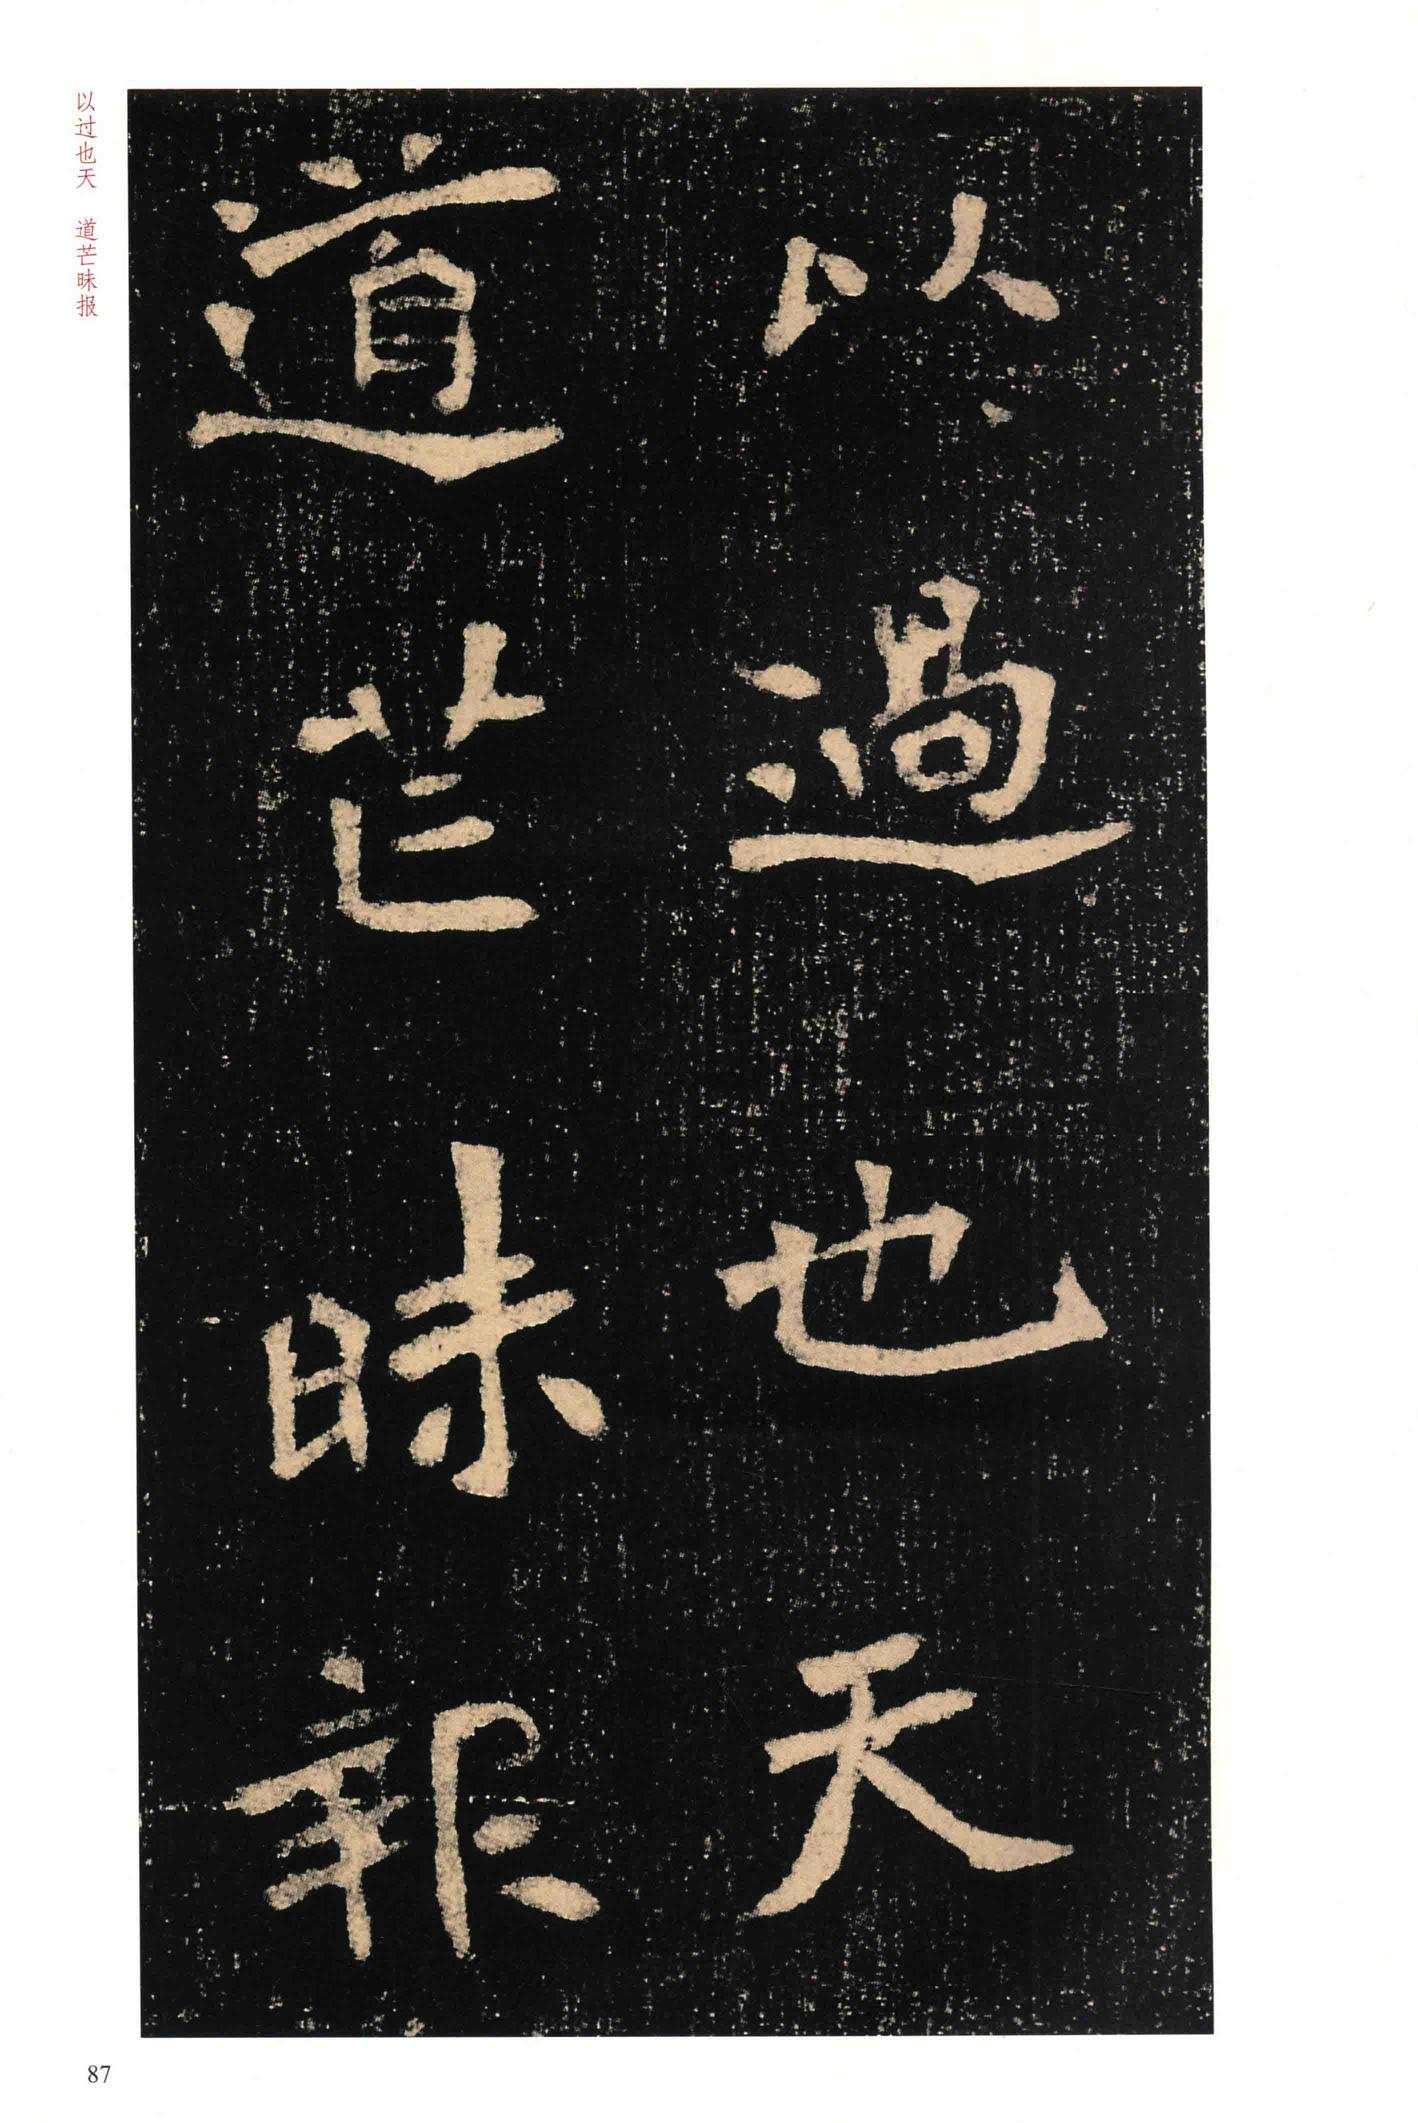 以過也天
道芒昧報
以过也天 道芒昧报
87